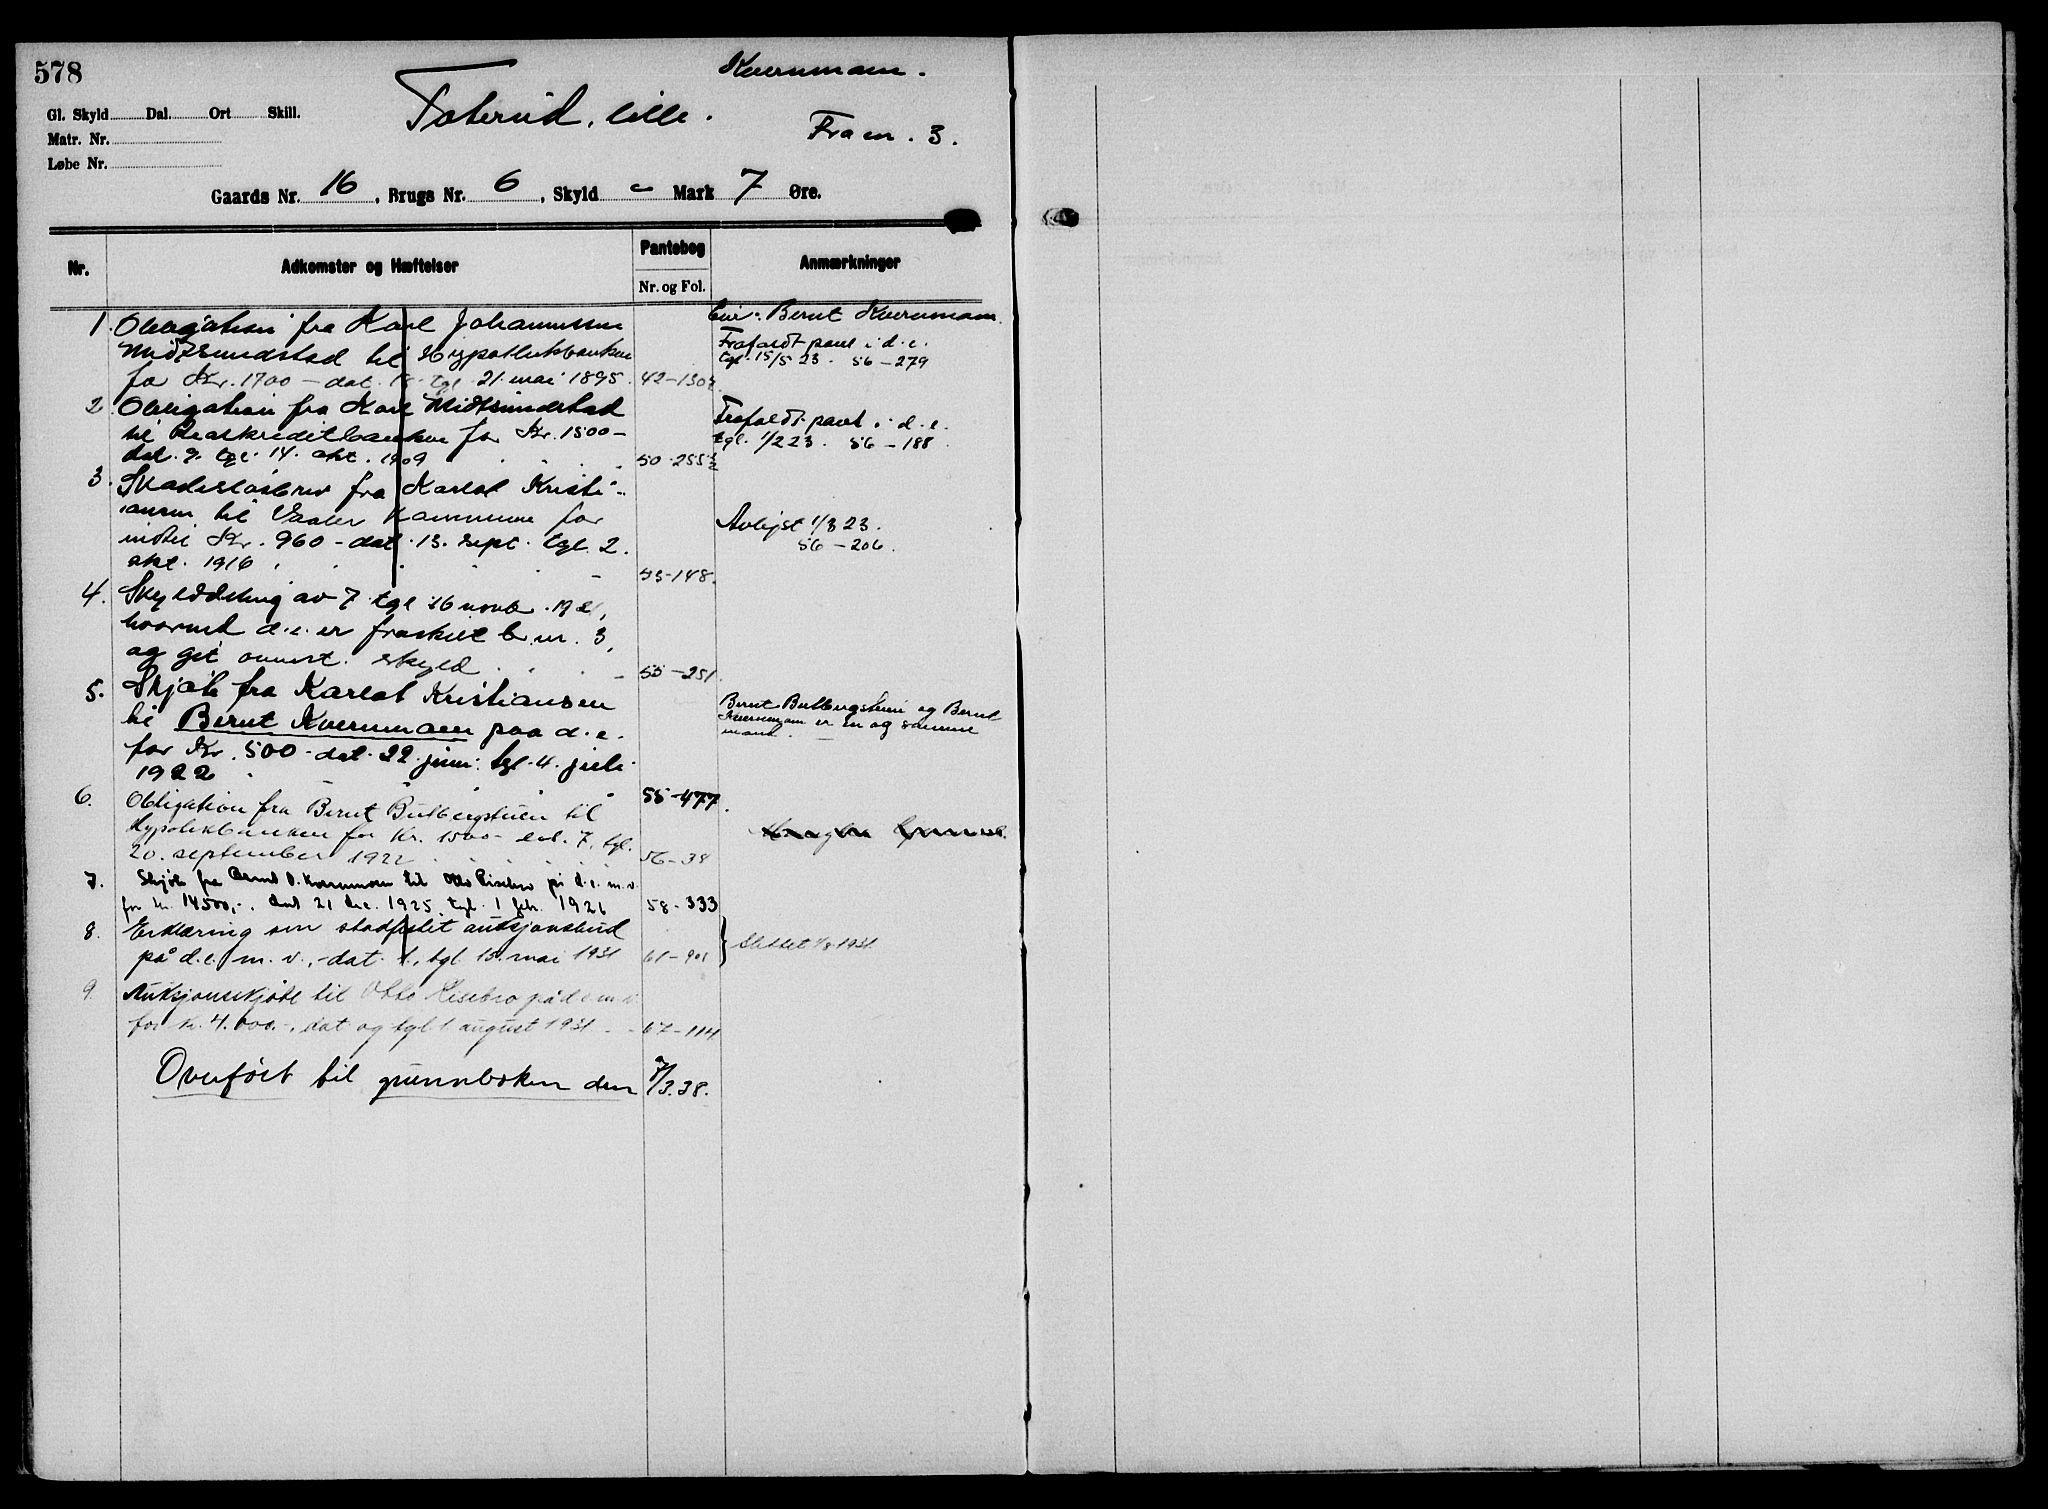 578
Kvernmoen.
Toterud, lille.
Fra m. 3.
Gl. Skyld Dal. Ort Skill.
Matr. Nr.
Løbe Nr.
Gaards Nr. 16, Brugs Nr. 6, Skyld - Mark 7 Øre.
Nr. Adkomster og Hæftelser Pantebog Nr. og Fol. Anmærkninger
Eier: Bernt Kvernmoen.
1. Obligation fra Karl Johannessen
Midtsundstad til Hypotekbanken
for Kr. 1700 - dat. tgl. 21. mai 1895. 42-130
Frafaldt pant i d. e.
tgl. 15/5 23. 56-279
2. Obligation fra Karl Midtsundstad
til Realkreditbanken for Kr. 1500 -
dat. 9. tgl. 14. okt. 1909 50-255
Frafaldt pant i d. e.
tgl. 1/2 23. 56-188
3. Skadesløsbrev fra Karlot Kristi-
ansen til Vaaler Kommune for
indtil Kr. 960 - dat. 13. sept. tgl. 2.
okt. 1916 53-148.
Avlyst 1/3 23.
56-206.
4. Skylddeling av 7 tgl 16 novb. 1921,
hvorved d. e. er fraskilt b. nr. 3,
og git anmert. skyld 55-251.
5. Skjøte fra Karlot Kristiansen
til Bernt Kvernmoen paa d. e.
for Kr. 500 - dat. 22. juni. tgl. 4. juli
1922 55-477.
Bernt Bulbergstuen og Bernt
Kvernmoen er en og samme
mand.
6. Obligation fra Bernt Bulbergstuen til
Hypotekbanken for Kr. 1500 - dat. 7, tgl.
20. september 1922 56-38
7. Skjøte fra Bernt O. Kvernmoen til Otto Risebro på d. e. m. v.
for kr. 14500,-. dat 21 des. 1925. tgl. 1 feb. 1926 58-333
8. Erklæring om stadfestet auksjonsbud
på d. e. m. v., - dat. 1., tgl 15. mai 1931 61-901
Slettet 1/8 1931.
9. Auksjonsskjøte til Otto Risebro på d e m v.
for kr. 4.000.-, dat og tgl 1. august 1931 62-114.
Overført til grunnboken den 9/3.38.